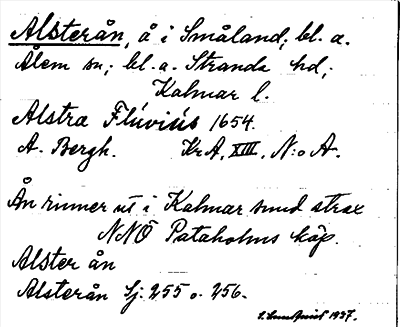 Alsterån, å i Småland, bl. a.
Ålem sn; bl. a. Stranda hd;
Kalmar l.
Alstra Flúviús 1654.
A. Bergh. KrA, XIII, N:o A.
Ån rinner ut i Kalmar sund strax
NNÖ Pataholms köp.
Alster ån
Alsterån Sj: 255 o. 256.
1937.